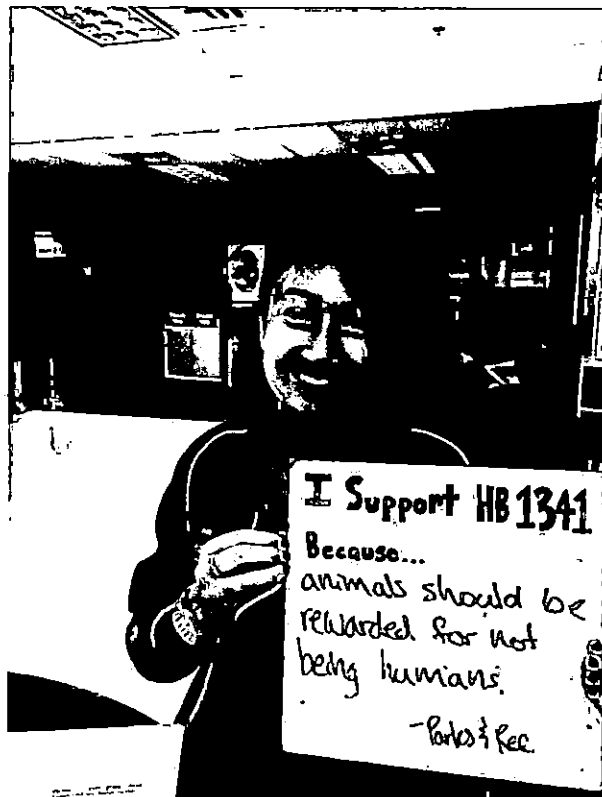 I Support HB 1341
Because...
animals should be
rewarded for not
being humans.
-Parks & Rec.